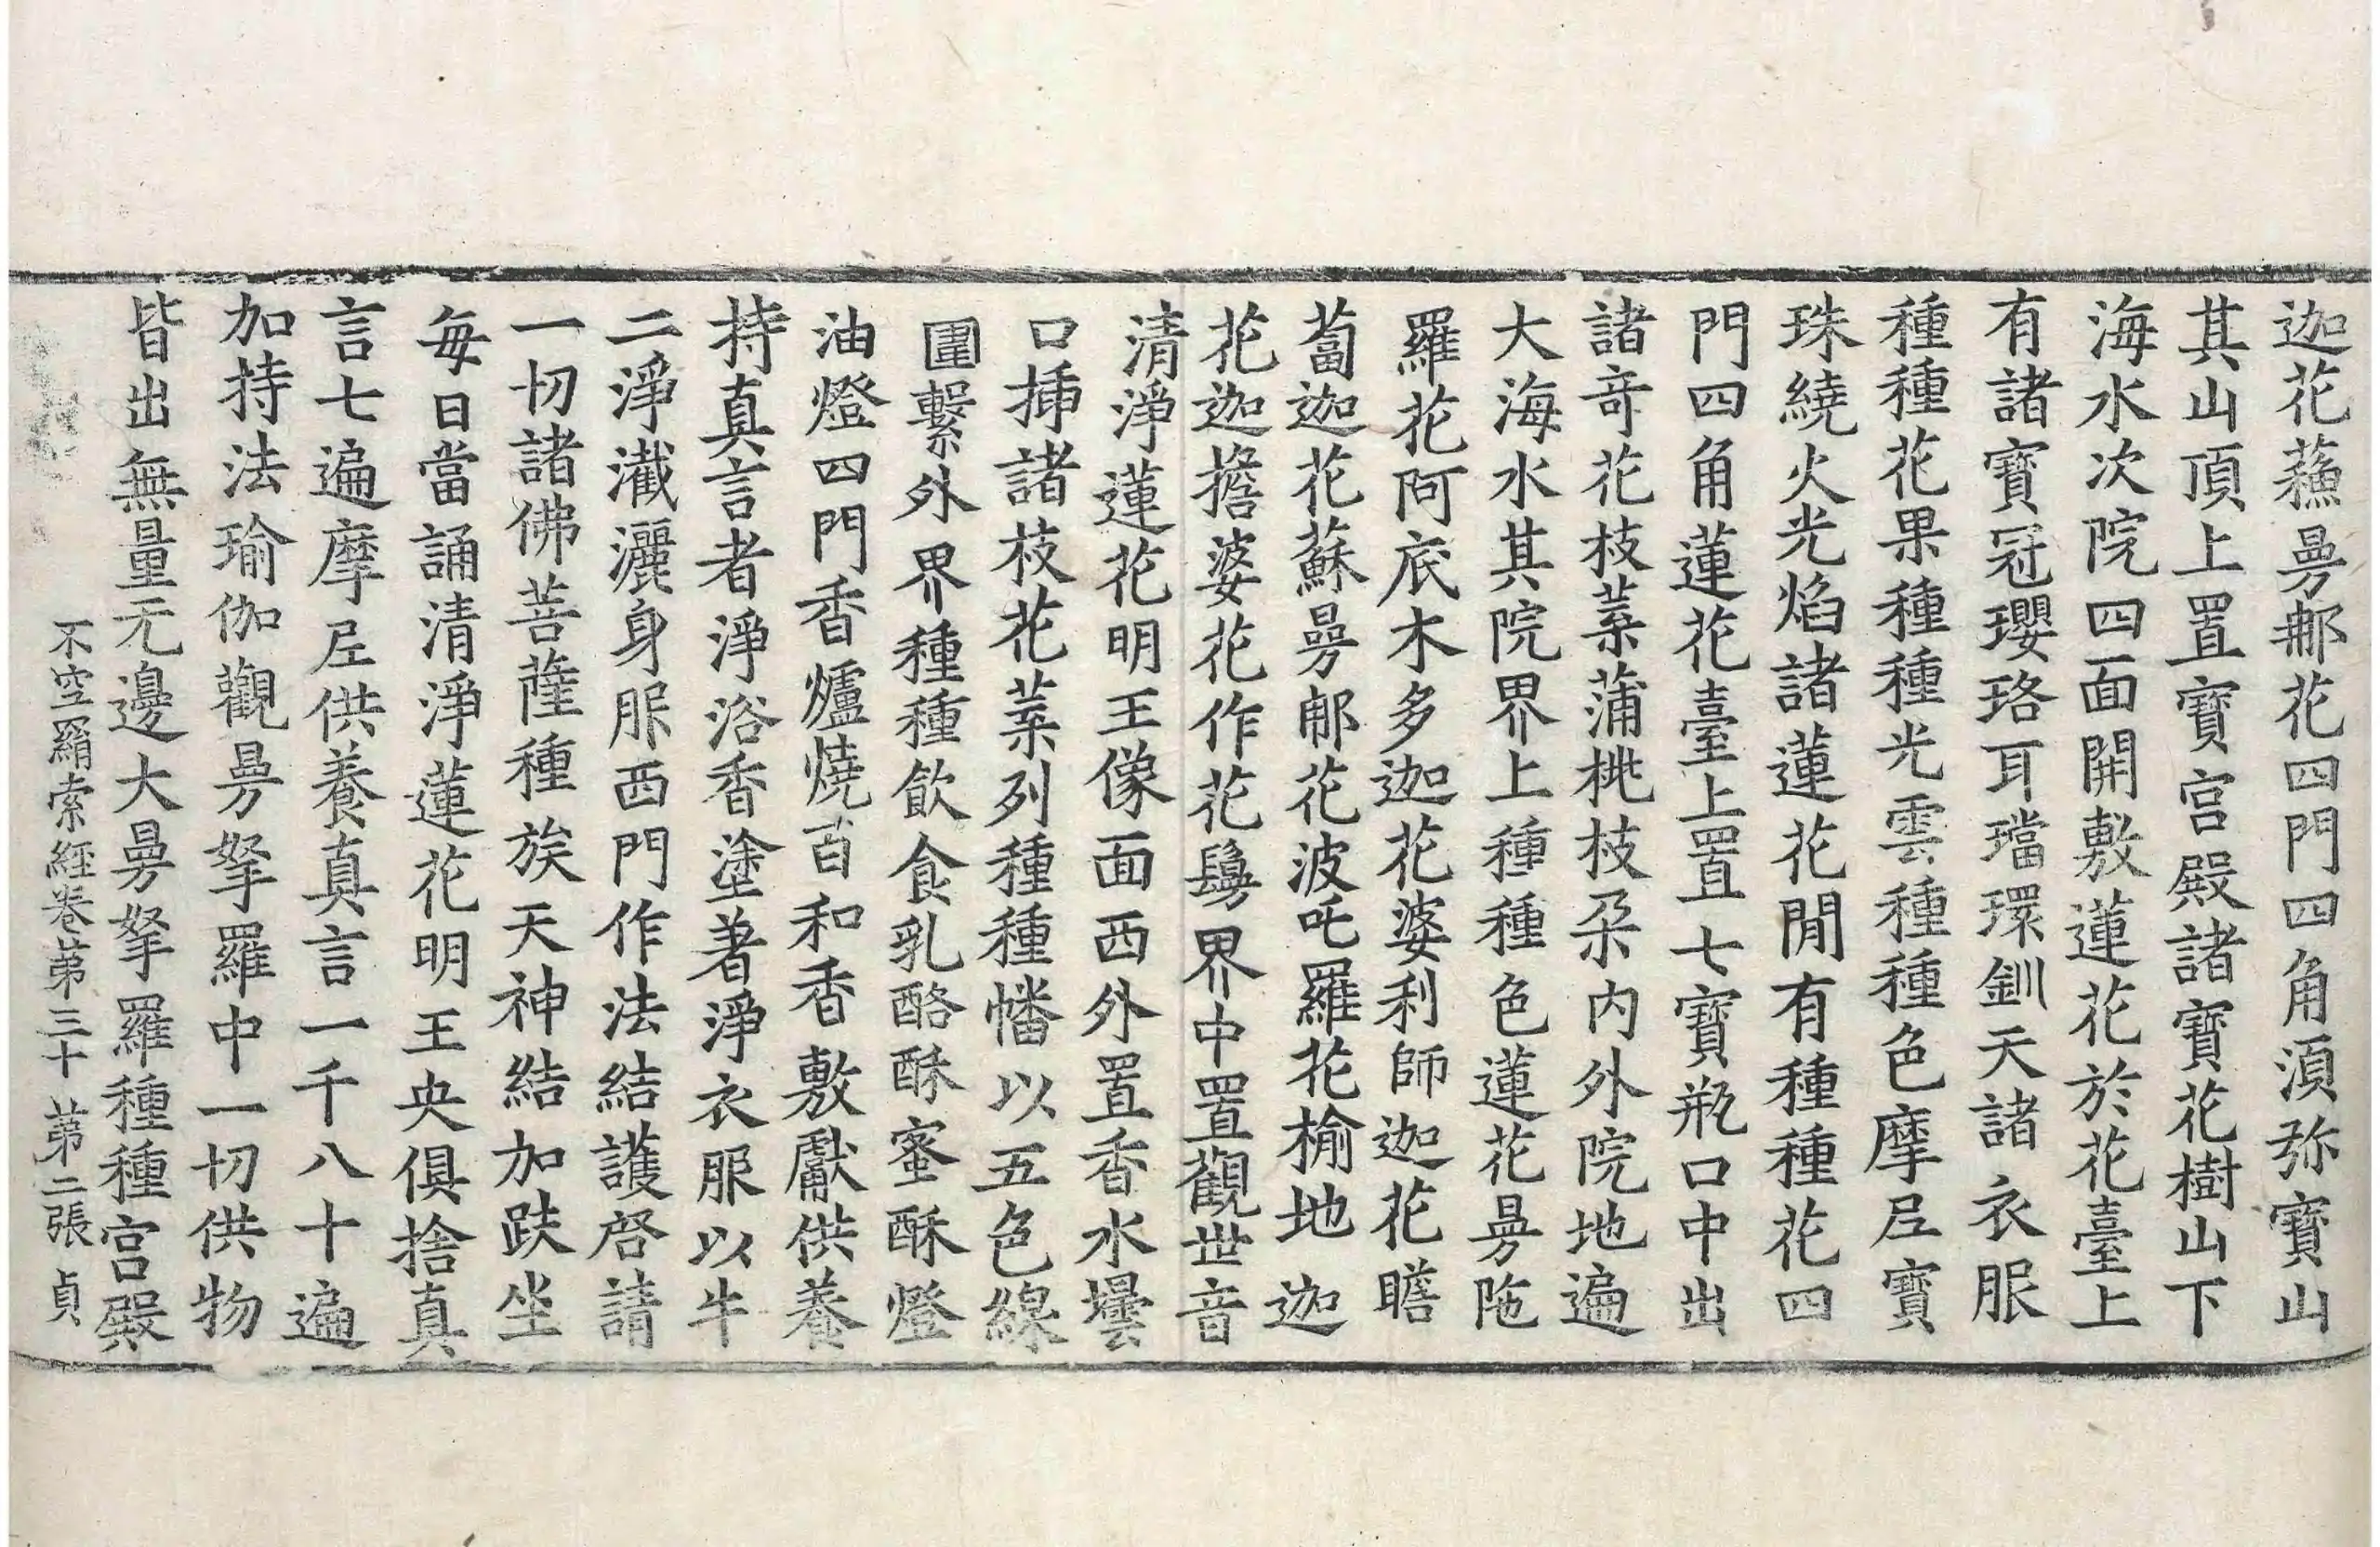 迦花蘓曼郍花四門四角湏弥寶山
其山頂上置寶宮殿諸寶花樹山下
海水次院四面開敷蓮花於花臺上
有諸寶冠瓔珞耳璫環釧天諸衣服
種種花果種種光雲種種色摩尼寶
珠繞火光焰諸蓮花閒有種種花四
門四角蓮花臺上置七寶瓶口中出
諸竒花枝葉蒲桃枝朶内外院地遍
大海水其院界上種種色蓮花曼陁
羅花阿底木多迦花婆利師迦花瞻
蔔迦花蘇曼郍花波吒羅花榆地迦
花迦擔婆花作花鬘界中置觀世音
清淨蓮花明王像面西外置香水壜
口揷諸枝花葉列種種幡以五色線
圍繫外界種種飲食乳酪酥蜜酥燈
油燈四門香爐燒百和香敷獻供養
持真言者淨浴香塗著淨衣服以牛
二淨瀐灑身服西門作法結護啓請
一切諸佛菩薩種族天神結加趺坐
每日當誦清淨蓮花明王央俱捨真
言七遍摩尼供養真言一千八十遍
加持法瑜伽觀曼拏羅中一切供物
皆出無量无邊大曼拏羅種種宮殿
不空羂索經卷苐三十 苐二張 貞